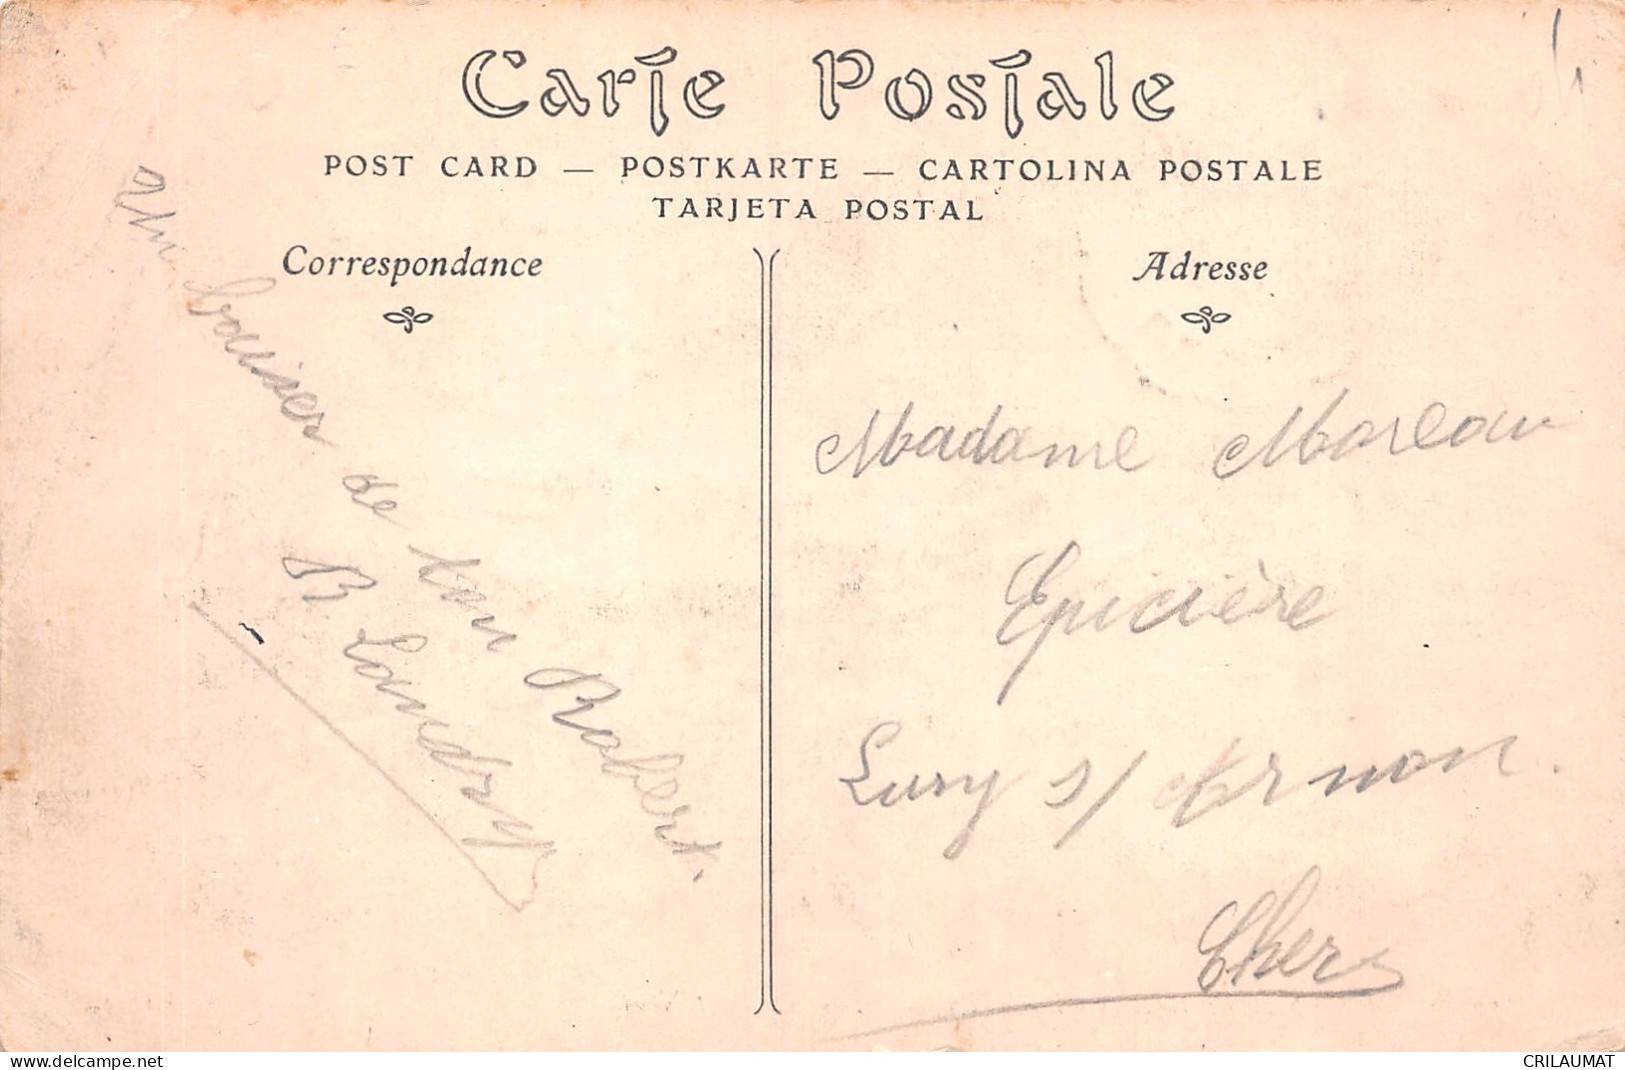 Carte Postale
POST CARD — POSTKARTE — CARTOLINA POSTALE
TARJETA POSTAL
Correspondance
Adresse
Un baiser de ton Robert.
R Landry
Madame Moreau
Epicière
Lury s/ Arnon.
Cher
www.delcampe.net
CRILAUMAT